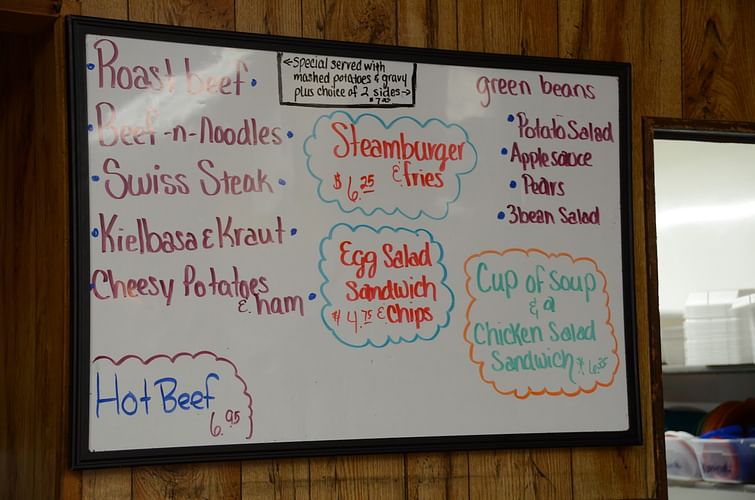 Roast beef
Beef-n-Noodles
Swiss Steak
Kielbasa & Kraut
Cheesy Potatoes
& ham
Hot Beef
6.95
←Special served with
mashed potatoes & gravy
plus choice of 2 sides→
Steamburger
$6.25 & fries
Egg Salad
Sandwich
$4.75 & Chips
green beans
Potato Salad
Applesauce
Pears
3bean Salad
Cup of Soup
& a
Chicken Salad
Sandwich